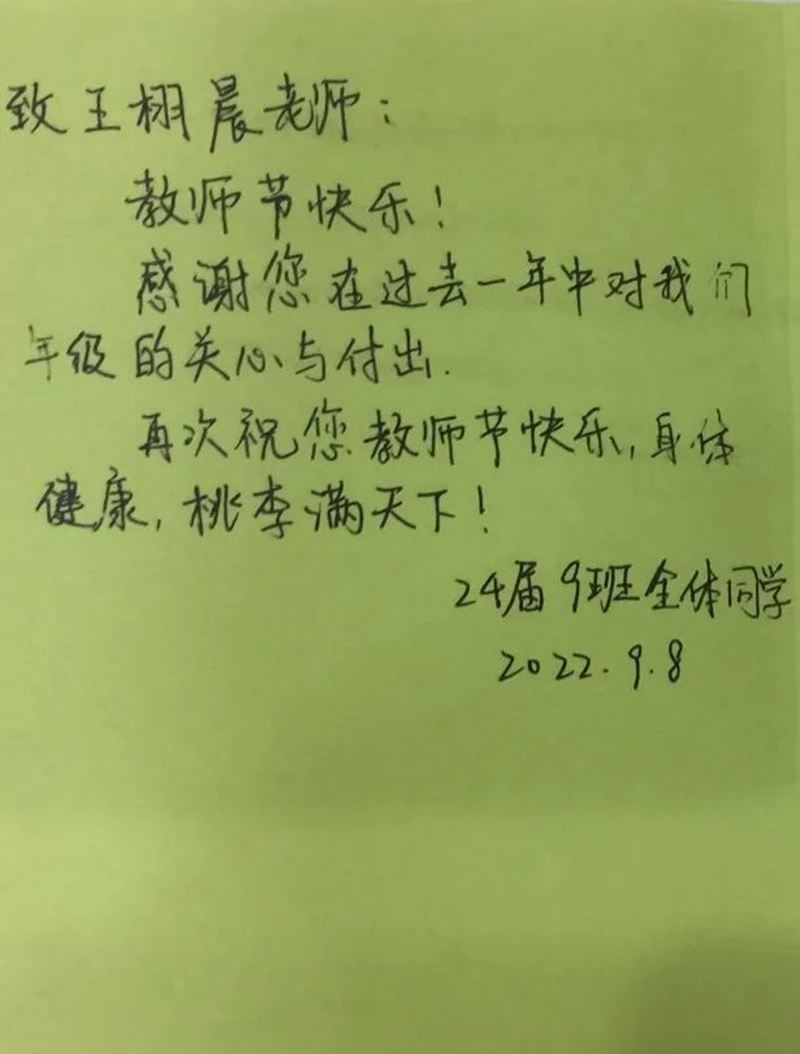 致王栩晨老师:
教师节快乐!
感谢您在过去一年中对我们
年级的关心与付出.
再次祝您教师节快乐,身体
健康,桃李满天下!
24届9班全体同学
2022.9.8